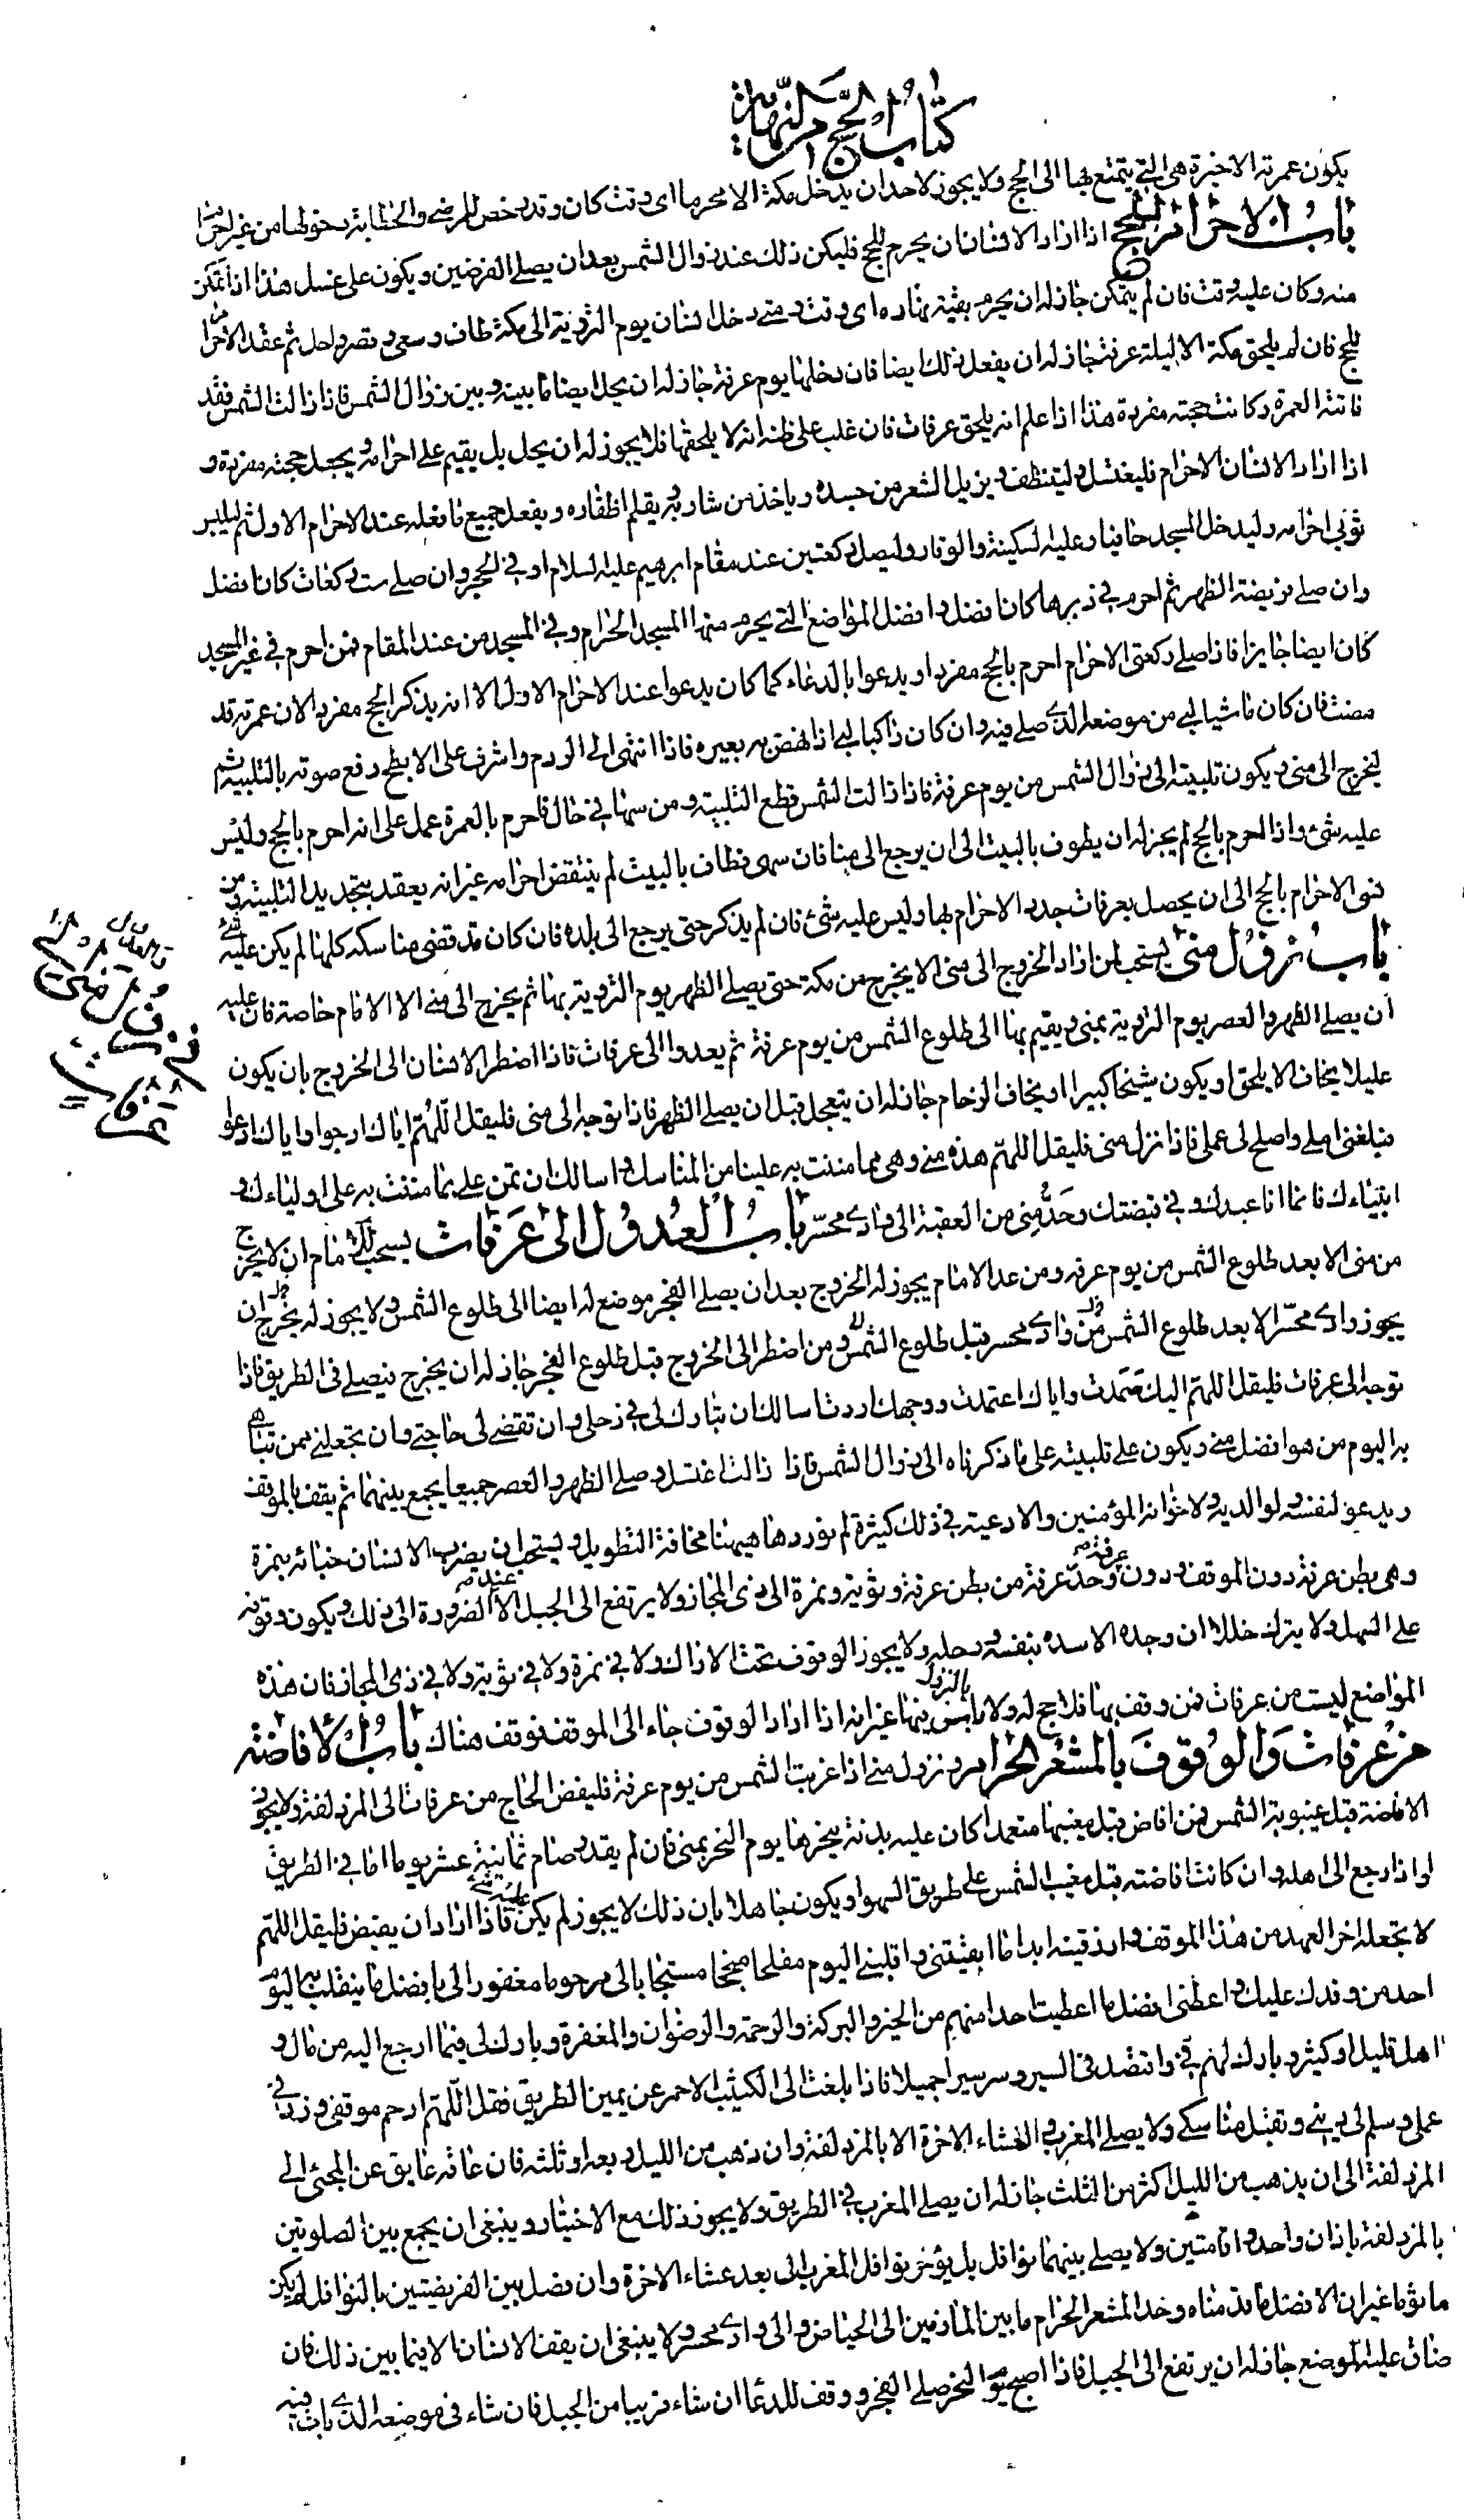 كتاب الحج من النهاية
يكون عمرته الاخيرة هى التى يتمتع بها الى الحج ولا يجوز لاحد ان يدخل مكة الا محرما اى وقت كان وقد رخص للمرضى والحطابة دخولها من غير احرام
باب الاحرام للحج اذا اراد الانسان ان يحرم للحج فليكن ذلك عند زوال الشمس بعد ان يصلى الفرضين ويكون على غسل هذا اذا تمكن
منه وكان عليه وقت فان لم يتمكن جاز له ان يحرم بقية نهاره اى وقت ومتى دخل انسان يوم التروية الى مكة طاف وسعى وقصر واحل ثم عقد الاحرام
للحج فان لم يلحق مكة الا ليلة عرفة جاز له ان يفعل ذلك ايضا فان دخلها يوم عرفة جاز له ان يحل ايضا ما بينه وبين زوال الشمس فاذا زالت الشمس فقد
فاتته العمرة وكانت حجته مفردة هذا اذا علم انه يلحق عرفات فان غلب على ظنه انه لا يلحقها فلا يجوز له ان يحل بل يقيم على احرامه ويجعل حجته مفردة و
اذا اراد الانسان الاحرام فليغتسل وليتنظف ويزيل الشعر من جسده وياخذ من شاربه ويقلم اظفاره ويفعل جميع ما فعله عند الاحرام الاول ثم ليلبس
ثوبى احرامه وليدخل المسجد حافيا وعليه السكينة والوقار وليصل ركعتين عند مقام ابرهيم عليه السلام او فى الحجر وان صلى ست ركعات كان افضل
وان صلى فريضة الظهر ثم احرم فى دبرها كان افضل وافضل المواضع التى يحرم منها المسجد الحرام وفى المسجد من عند المقام فمن احرم فى غير المسجد
كان ايضا جايزا فاذا صلى ركعتى الاحرام احرم بالحج مفردا ويدعوا بالدعاء كما كان يدعوا عند الاحرام الاول الا انه يذكر الحج مفردا لان عمرته قد
مضت فان كان ماشيا لبى من موضعه الذى صلى فيه وان كان راكبا لبى اذا نهض به بعيره فاذا انتهى الى الردم واشرف على الابطح رفع صوته بالتلبية ثم
ليخرج الى منى ويكون تلبيته الى زوال الشمس من يوم عرفة فاذا زالت الشمس قطع التلبية ومن سها فى حال فاحرم بالعمرة عمل على انه احرم بالحج وليس
عليه شئ واذا احرم بالحج لم يجز له ان يطوف بالبيت الى ان يرجع الى منا فان سهى فطاف بالبيت لم ينتقض احرامه غير انه يعقد بتجديد التلبية ومن
نسى الاحرام بالحج الى ان يحصل بعرفات جدد الاحرام بها وليس عليه شئ فان لم يذكر حتى يرجع الى بلده فان كان قد قضى مناسكه كلها لم يكن عليه شئ
باب نزول منى يستحب لمن اراد الخروج الى منى الا يخرج من مكة حتى يصلى الظهر يوم التروية بها ثم يخرج الى منى الا الامام خاصة فان عليه
ان يصلى الظهر والعصر يوم التروية بمنى ويقيم بها الى طلوع الشمس من يوم عرفة ثم يعدوا الى عرفات فاذا اضطر الانسان الى الخروج بان يكون
عليلا يخاف الا يلحق او يكون شيخا كبيرا او يخاف الزحام جاز له ان يتعجل قبل ان يصلى الظهر فاذا توجه الى منى فليقل اللهم اياك ارجوا واياك ادعوا
فبلغنى املى واصلح لى عملى فاذا نزل منى فليقل اللهم هذه منى وهى مما مننت به علينا من المناسك واسالك ان تمن على بما مننت به على اوليائك و
انبيائك فانما انا عبدك وفى قبضتك وحد منى من العقبة الى وادى محسر باب العدول الى عرفات يستحب للامام ان لا يخرج
من منى الا بعد طلوع الشمس من يوم عرفه ومن عدا الامام يجوز له الخروج بعد ان يصلى الفجر موضع له ايضا الى طلوع الشمس ولا يجوز له يخرج ان
يجوز وادى محسر الا بعد طلوع الشمس من وادى محسر قبل طلوع الشمس ومن اضطر الى الخروج قبل طلوع الفجر جاز له ان يخرج فيصلى فى الطريق فاذا
توجه الى عرفات فليقل اللهم اليك صمدت واياك اعتمدت ووجهك اردت اسالك ان تبارك لى فى رحلى وان تقضى لى حاجتى وان تجعلنى ممن تباهى
به اليوم من هو افضل منى ويكون على تلبيته على ما ذكرناه الى زوال الشمس فاذا زالت اغتسل وصلى الظهر والعصر جميعا يجمع بينهما ثم يقف بالموقف
ويدعو لنفسه ولوالديه ولاخوانه المؤمنين والادعية فى ذلك كثيرة لم نوردها هيهنا مخافة التطويل ويستحب ان يضرب الانسان خبائه بنمرة
وهى بطن عرنة دون الموقف ودون عرفة وحد عرفة من بطن عرنة وثوية ونمرة الى ذى المجاز ولا يرتفع الى الجبل الا عند الضرورة الى ذلك ويكون وقوفه
على السهل ولا يترك خللا ان وجده الا سده بنفسه ورحله ولا يجوز الوقوف تحت الاراك ولا فى نمرة ولا فى ثوية ولا فى ذى المجاز فان هذه
المواضع ليست من عرفات فمن وقف بها فلا حج له ولا باس بالنزول فيها غير انه اذا اراد الوقوف جاء الى الموقف فوقف هناك باب الافاضة
من عرفات والوقوف بالمشعر الحرام ونزول منى اذا غربت الشمس من يوم عرفة فليفض الحاج من عرفات الى المزدلفة ولا يجوز
الافاضة قبل غيبوبة الشمس فمن افاض قبل مغيبها متعمدا كان عليه بدنة ينحرها يوم النحر بمنى فان لم يقدر صام ثمانية عشر يوما اما فى الطريق
او اذا رجع الى اهله وان كانت افاضته قبل مغيب الشمس على طريق السهو او يكون جاهلا بان ذلك لا يجوز لم يكن عليه شئ فاذا اراد ان يفيض فليقل اللهم
لا تجعله اخر العهد من هذا الموقف وارزقنيه ابدا ما ابقيتنى واقلبنى اليوم مفلحا منجحا مستجابا لى مرحوما مغفورا لى بافضل ما ينقلب به اليوم
احد من وفدك عليك واعطنى افضل ما اعطيت احدا منهم من الخير والبركة والرحمة والرضوان والمغفرة وبارك لى فيما ارجع اليه من مال و
اهل قليل او كثير وبارك لهم فى واقتصد فى السير وسر سيرا جميلا فاذا بلغت الى الكثيب الاحمر عن يمين الطريق فقل اللهم ارحم موقفى وزد فى
عملى وسلم لى دينى وتقبل مناسكى ولا يصلى المغرب والعشاء الاخرة الا بالمزدلفة وان ذهب من الليل ربعه او ثلثه فان عاقه عايق عن المجئ الى
المزدلفة الى ان يذهب من الليل اكثر من الثلث جاز له ان يصلى المغرب فى الطريق ولا يجوز ذلك مع الاختيار وينبغى ان يجمع بين الصلوتين
بالمزدلفة باذان واحد واقامتين ولا يصلى بينهما نوافل بل يؤخر نوافل المغرب الى بعد عشاء الاخرة وان فصل بين الفريضتين بالنوافل لم يكن
ماثوما غير ان الافضل ما قدمناه وحد المشعر الحرام ما بين المازمين الى الحياض والى وادى محسر ولا ينبغى ان يقف الانسان الا فيما بين ذلك فان
ضاق عليه الموضع جاز له ان يرتفع الى الجبل فاذا اصبح يوم النحر صلى الفجر ووقف للدعا ان شاء قريبا من الجبل فان شاء فى موضعه الذى بات فيه